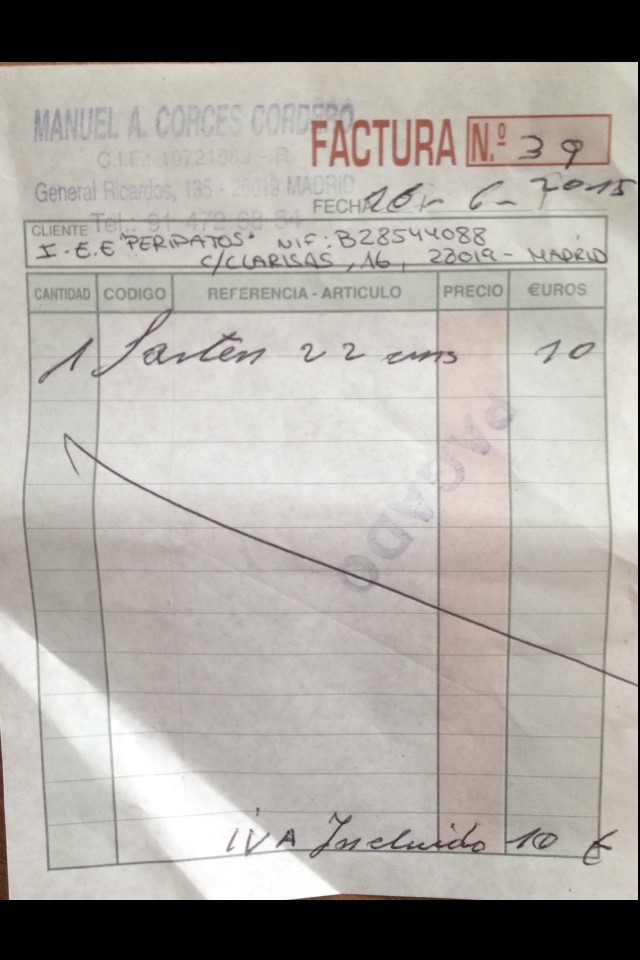 MANUEL A. CORCES CORDERO
C.I.F.: 10721583 - R
General Ricardos, 135 - 28019 MADRID
Tel.: 91 472 68 54
FACTURA N.º 39
FECHA 16 - 6 - 2015
CLIENTE I.E.E "PERIPATOS" NIF: B28544088
C/CLARISAS, 16, 28019 - MADRID
CANTIDAD CODIGO REFERENCIA - ARTICULO PRECIO €UROS
1 Sarten 22 cms 10
PAGADO
IVA Incluido 10 €